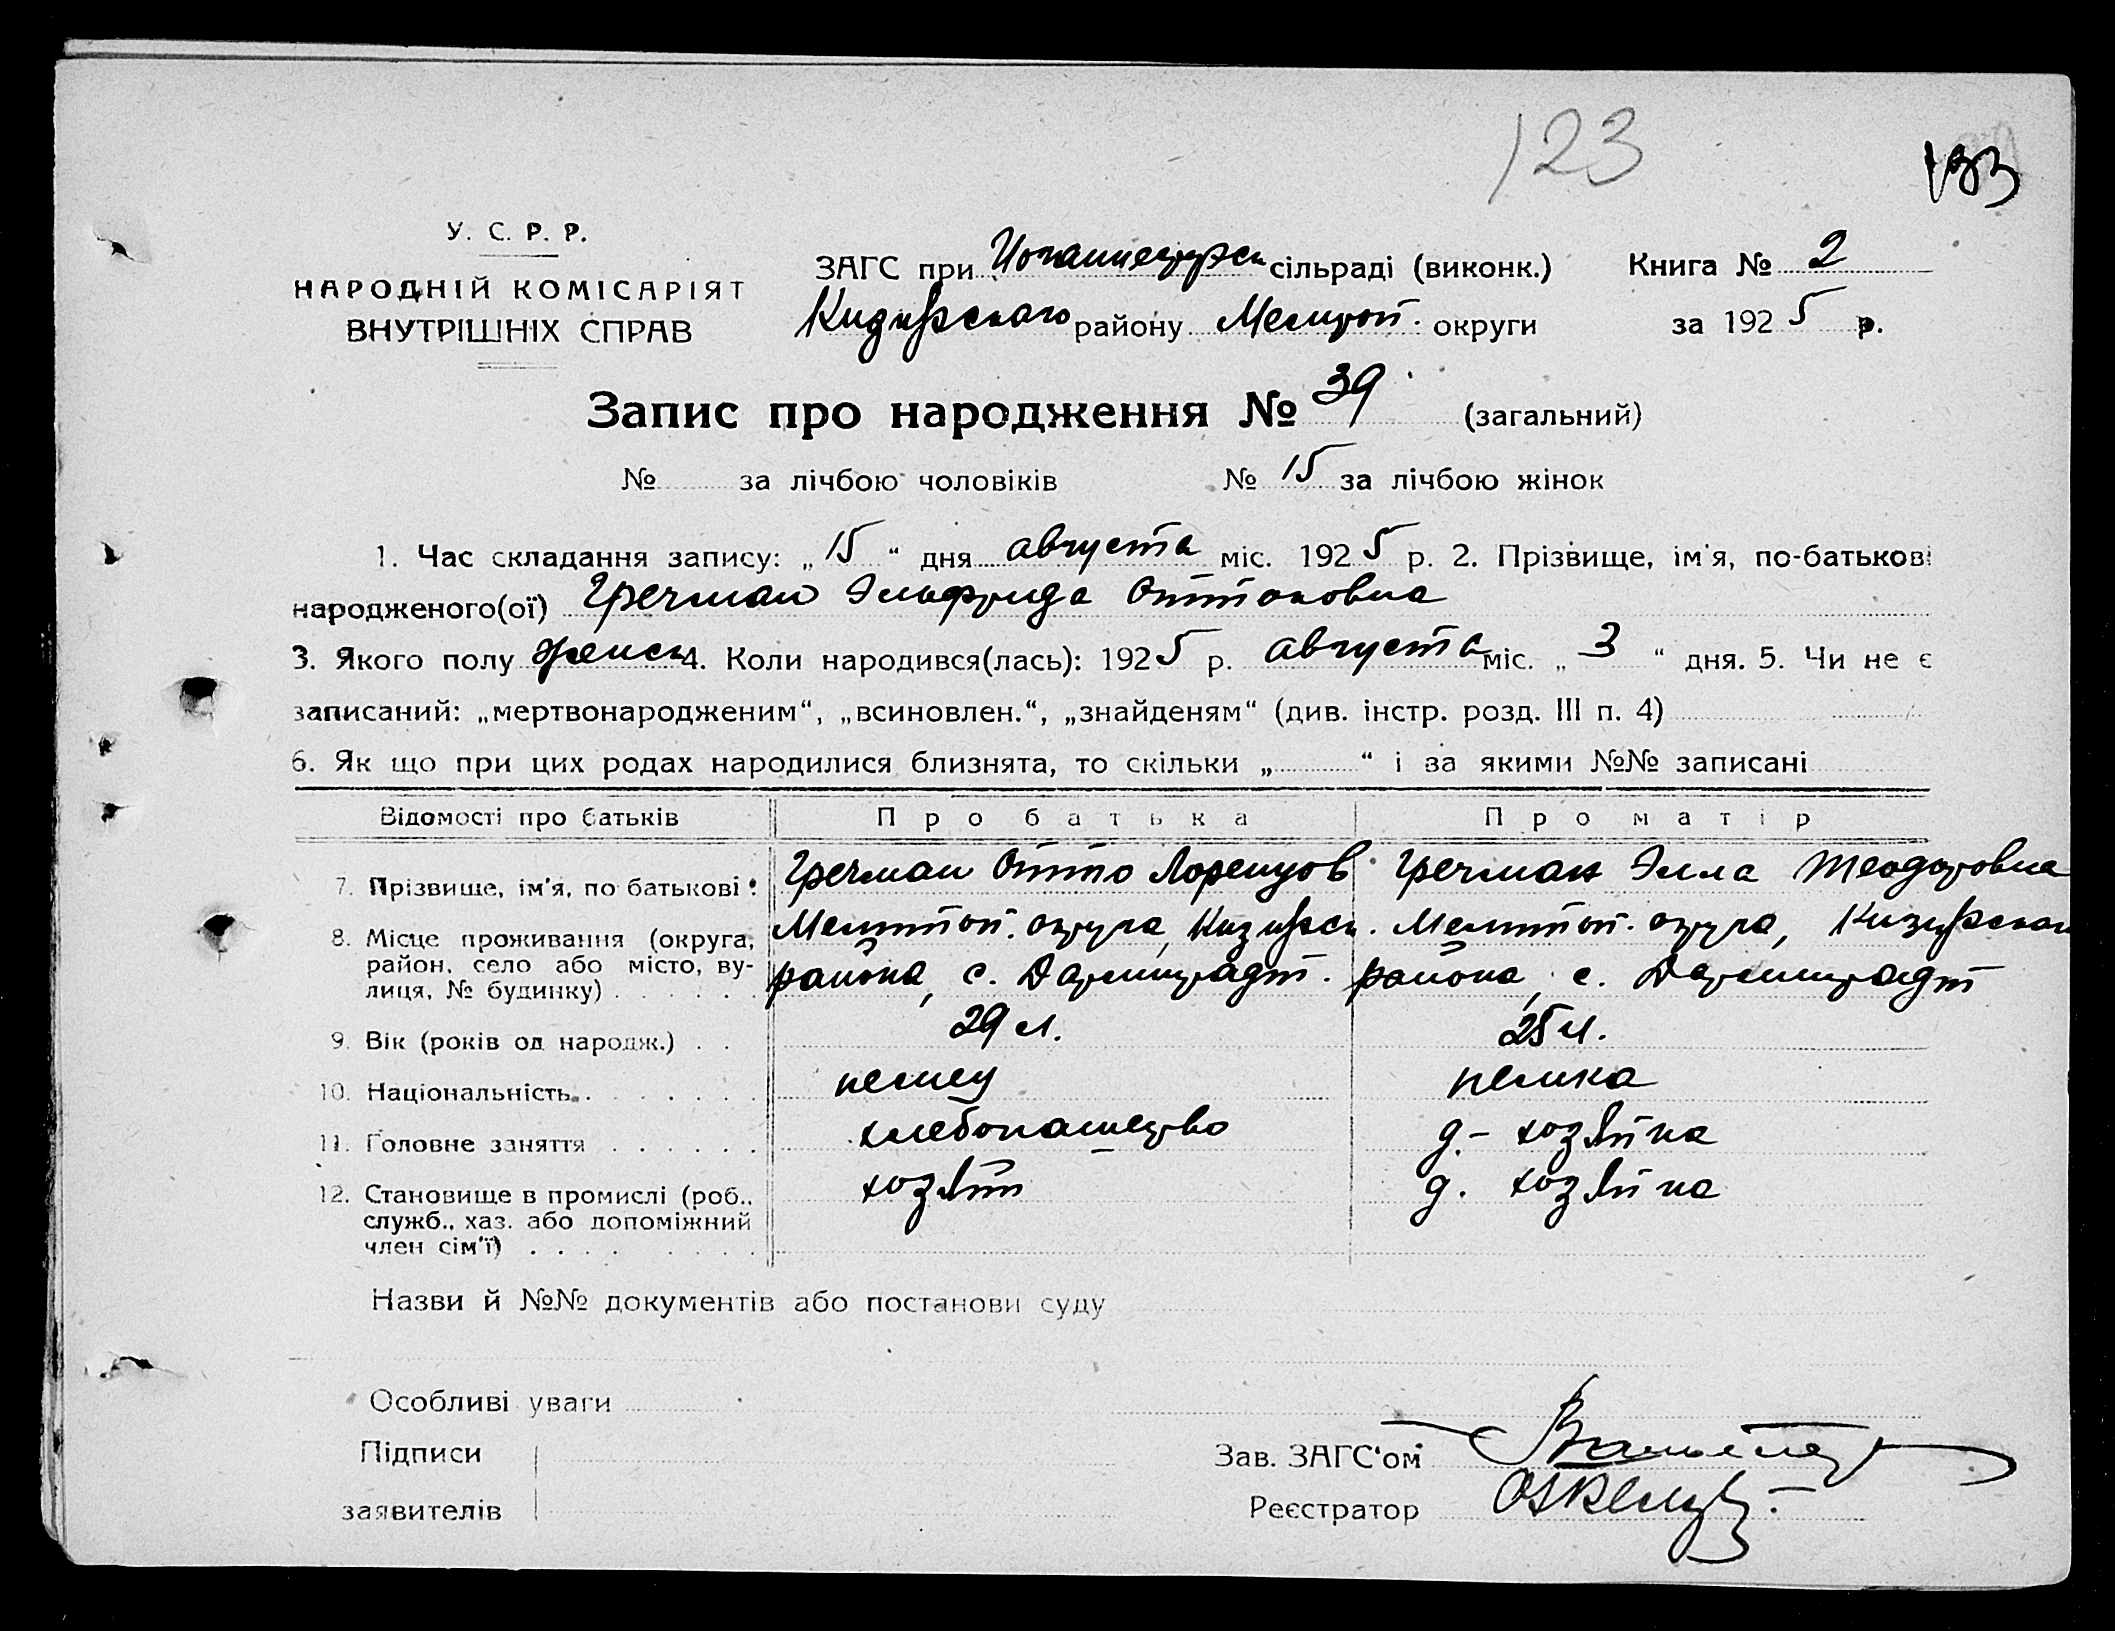 123
133
У. С. Р. Р.
НАРОДНІЙ КОМІСАРІЯТ
ВНУТРІШНІХ СПРАВ
ЗАГС при Иоганнесруск сільраді (виконк.) Книга № 2
району Мелитоп. округи за 1925 р.
Запис про народження № 39 (загальний)
№ за лічбою чоловіків № 15 за лічбою жінок
1. Час складання запису: „15“ дня августа міс. 1925 р. 2. Прізвище, ім'я, по-батькові
народженого(ої) Гречман Эльфрида Оттоновна
3. Якого полу женск 4. Коли народився(лась): 1925 р. августа міс. „3“ дня. 5. Чи не є
записаний: „мертвонародженим“, „всиновлен.“, „знайденям“ (див. інстр. розд. III п. 4)
6. Як що при цих родах народилися близнята, то скільки „ “ і за якими №№ записані
Відомості про батьків Про батька Про матір
7. Прізвище, ім'я, по батькові: Гречман Отто Лоренцов Гречман Элла Теодоровна
8. Місце проживання (округа, Мелитоп. округа, Кизиярск. Мелитоп. округа, Кизиярскаг
район, село або місто, ву- района, с. Дармштадт. района, с. Дармштадт
лиця, № будинку)
9. Вік (років од народж.) 29 л. 25 л.
10. Національність немец немка
11. Головне заняття хлебопашество д.- хозяйка
12. Становище в промислі (роб., хозяин д. хозяйка
служб., хаз. або допоміжний
член сім'ї)
Назви й №№ документів або постанови суду
Особливі уваги
Підписи
заявителів
Зав. ЗАГС'ом
Реєстратор